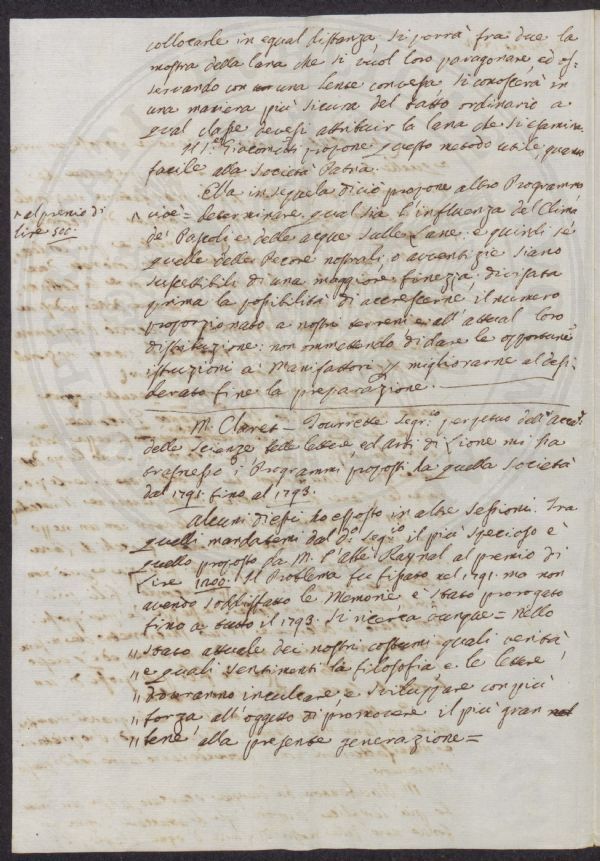 collocarle in equal distanza si porrà fra due la
mostra della lana che si vuol loro paragonare ed os-
servando con una lente convessa si conoscerà in
una maniera più sicura del tatto ordinario a
qual classe devesi attribuir la lana che si esamina.
Il Sr. Giacomelli propone questo metodo utile, quanto
facile alla Società Patria.
Ella in seguela di ciò propone altro Programma
^ al premio di
lire 300.
^ cioè = determinare qual sia l'influenza del Clima
de' Pascoli e delle acque sulle Lane: e quindi se
quelle delle Pecore nostrali, o avventizie siano
suscettibili di una maggiore finezza: divisata
prima la possibilità di accrescerne il numero
proporzionato a nostri terreni e all'attual loro
distribuzione: non ommettendo di dare le opportune
istruzioni a' Manifattori per migliorarne al desi-
derato fine la preparazione.
Mr. Claret = Tourrette Segr.io perpetuo dell'Accad.
delle Scienze belle lettere ed Arti di Lione mi ha
trasmesso i Programmi proposti da quella Società
dal 1791. fino al 1793.
Alcuni di essi ho esposto in altre sessioni. Tra
quelli mandatemi dal do. Segr.io il più specioso è
quello proposto da Mr. l'Abbe Raynal al premio di
Lire 1200. Il Problema fu fissato nel 1791. ma non
avendo soddisfatto le Memorie è stato prorogato
fino a tutto il 1793. Si ricerca dunque = Nello
" stato attuale dei nostri costumi quali verità
" e quali sentimenti la filosofia e le lettere
" dovranno inculcare, e sviluppare con più
" forza all'oggetto di promovere il più gran
" bene alla presente generazione =